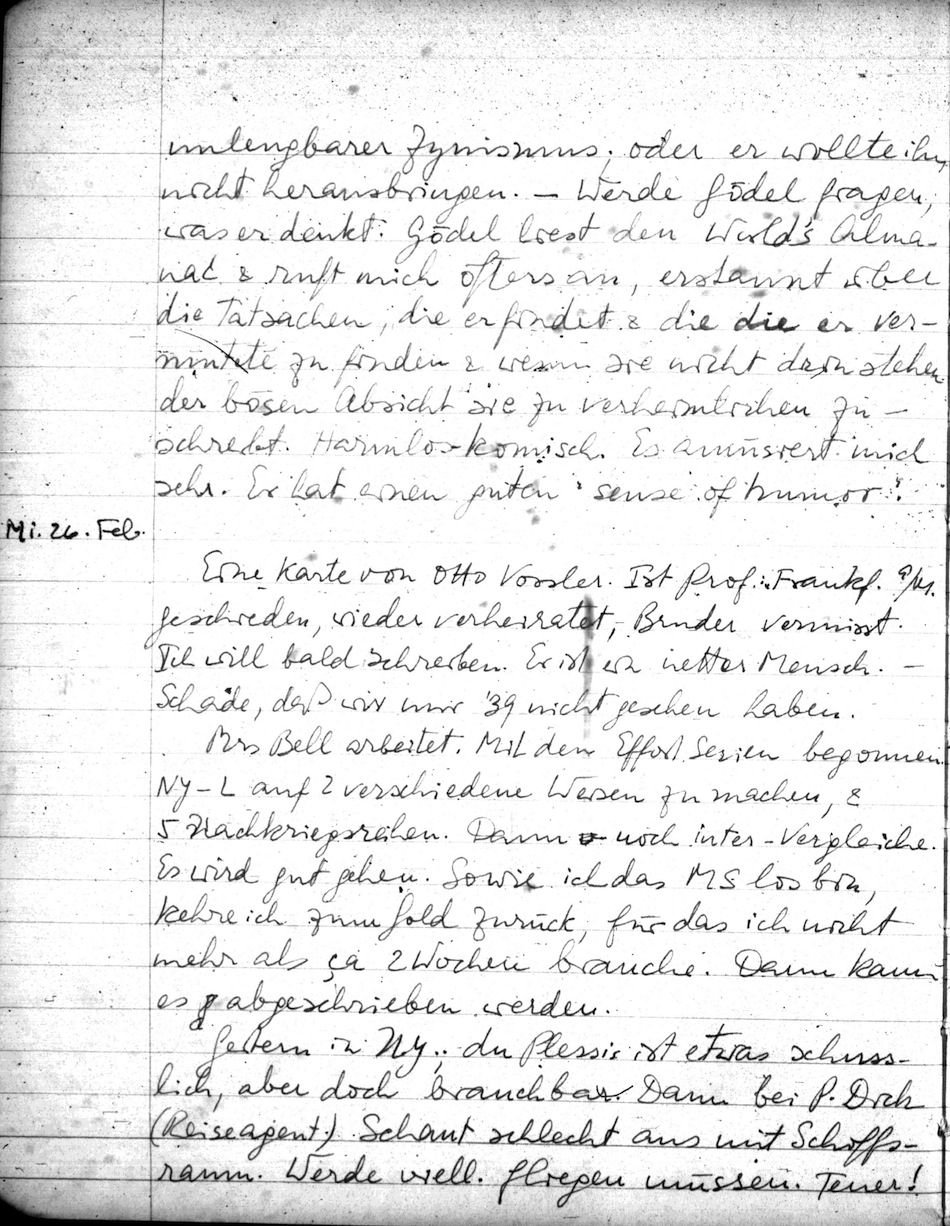 unleugbarer Zynismus; oder er wollte ihn
nicht herausbringen. – Werde Gödel fragen,
was er denkt. Gödel liest den World's Alma-
nac & ruft mich öfters an, erstaunt über
die Tatsachen, die er findet & die die er ver-
mutete zu finden & wenn sie nicht drin stehen
der bösen Absicht sie zu verheimlichen zu-
schreibt. Harmlos-komisch. Es amüsiert mich
sehr. Er hat einen guten 'sense of humor'.
Mi. 26. Feb.
Eine Karte von Otto Vossler. Ist Prof. Frankf. a/M.
geschieden, wieder verheiratet, Bruder vermisst.
Ich will bald schreiben. Er ist ein netter Mensch. –
Schade, daß wir uns '39 nicht gesehen haben.
Mrs Bell arbeitet. Mit den Effort Serien begonnen
NY-L auf 2 verschiedene Weisen zu machen, &
5 Nachkriegsreihen. Dann noch inter-Vergleiche.
Es wird gut gehen. Sowie ich das MS los bin,
kehre ich zum Gold zurück, für das ich nicht
mehr als ça 2 Wochen brauche. Dann kann
es abgeschrieben werden.
Gestern in NY; du Plessis ist etwas schuss-
lich, aber doch brauchbar. Dann bei P. Dick
(Reiseagent). Schaut schlecht aus mit Schiffs-
raum. Werde viell. fliegen müssen. Teuer!